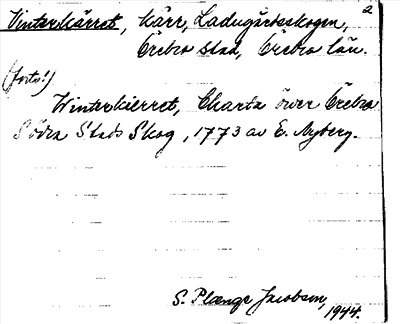 2
Vinterkärret, kärr, Ladugårdsskogen,
Örebro stad, Örebro län.
(forts!)
Winterkierret, Charta öwer Örebro
Södra Stads Skog, 1773 av E. Nyberg.
S. Plænge Jacobson,
1944.